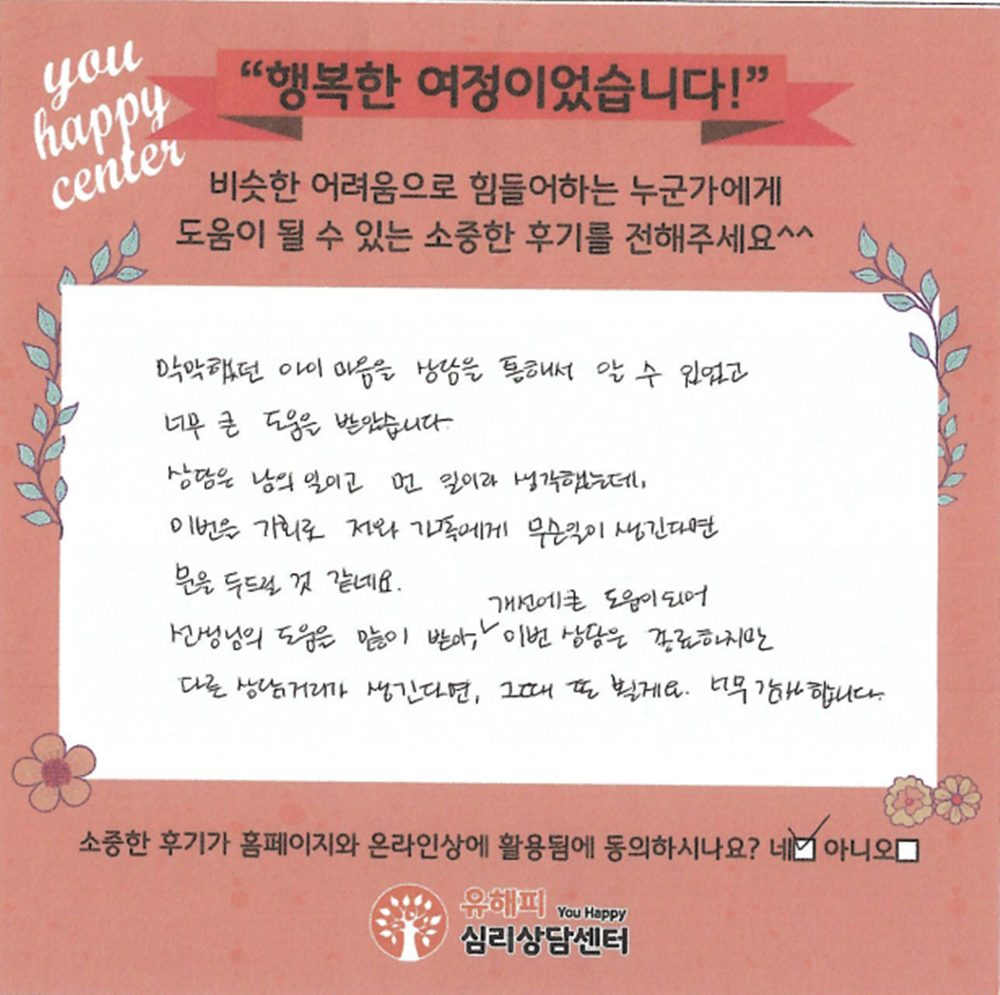 you
happy
center
“행복한 여정이었습니다!”
비슷한 어려움으로 힘들어하는 누군가에게
도움이 될 수 있는 소중한 후기를 전해주세요^^
막막했던 아이 마음을 상담을 통해서 알 수 있었고
너무 큰 도움을 받았습니다.
상담은 남의 일이고 먼 일이라 생각했는데,
이번을 기회로 저와 가족에게 무슨일이 생긴다면
문을 두드릴 것 같네요.
선생님의 도움을 많이 받아, 개선에큰 도움이 되어 이번 상담은 종료하지만
다른 상담거리가 생긴다면, 그때 또 뵐게요. 너무 감사합니다.
소중한 후기가 홈페이지와 온라인상에 활용됨에 동의하시나요? 네 아니오
유해피 You Happy
심리상담센터